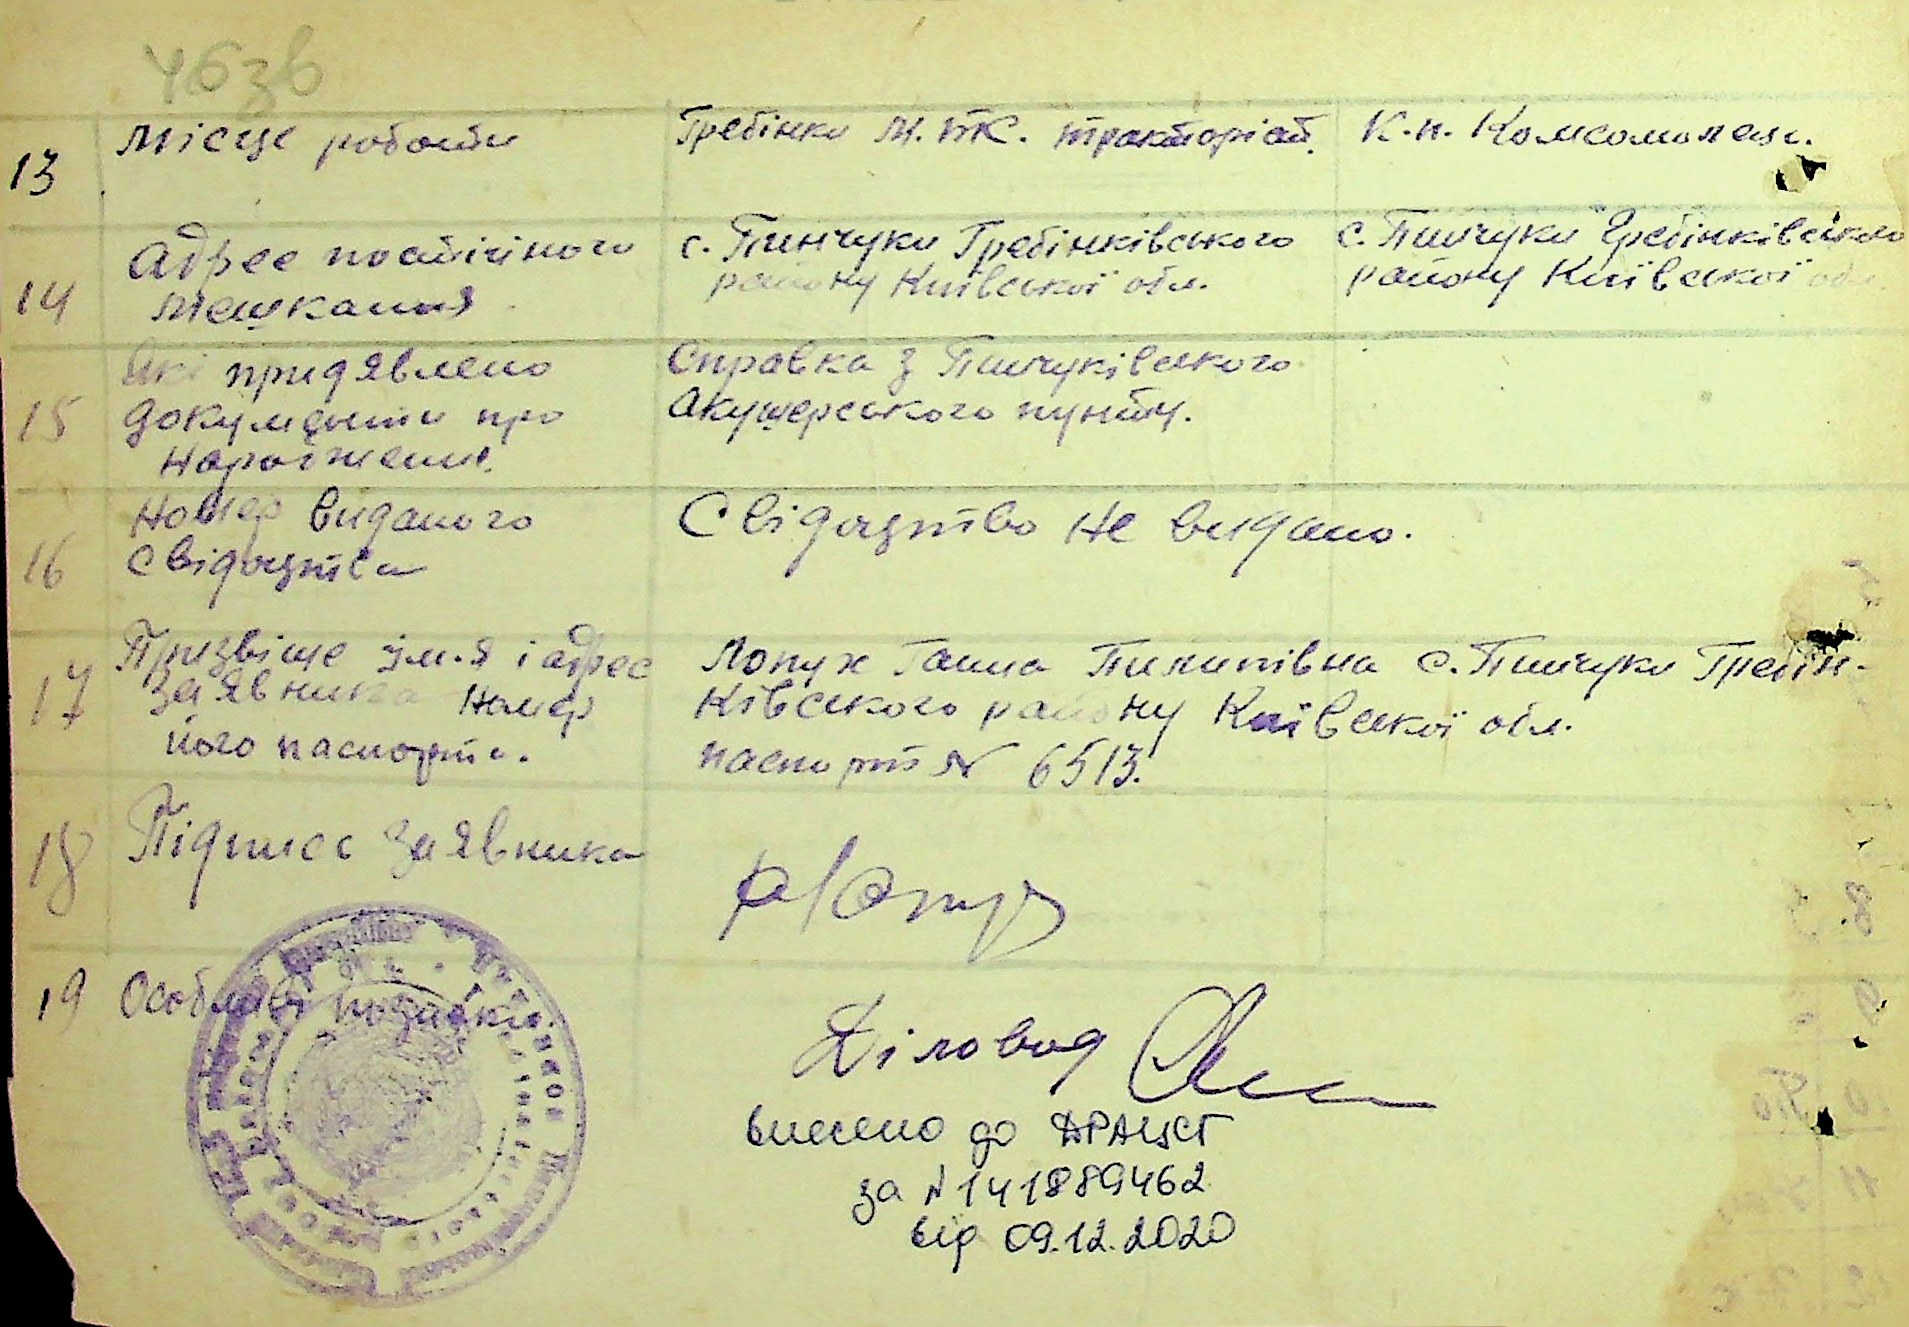 13 Місце роботи Гребінки М.Т.С. тракторіст. К.н. Комсомолець.
14 Адрес постіічного с. Пинчуки Гребінківського с. Пинчуки Гребінківського
мешкання району Київської обл. району Київської обл.
Які придявлено Справка з Пинчуківського
15 документи про Акушерського пункту.
народження.
Номер виданого Свідоцтво не видано.
16 свідоцтва
Призвіще ім.я і адрес Лопух Ганна Пилипівна с. Пинчуки Гребін-
17 заявника номер ківського району Київської обл.
його паспорта. паспорт № 6513.
18 Підписс заявника
19 Особливі позначки.
Діловод
внесено до ДРАЦСГ
за №141889462
від 09.12.2020